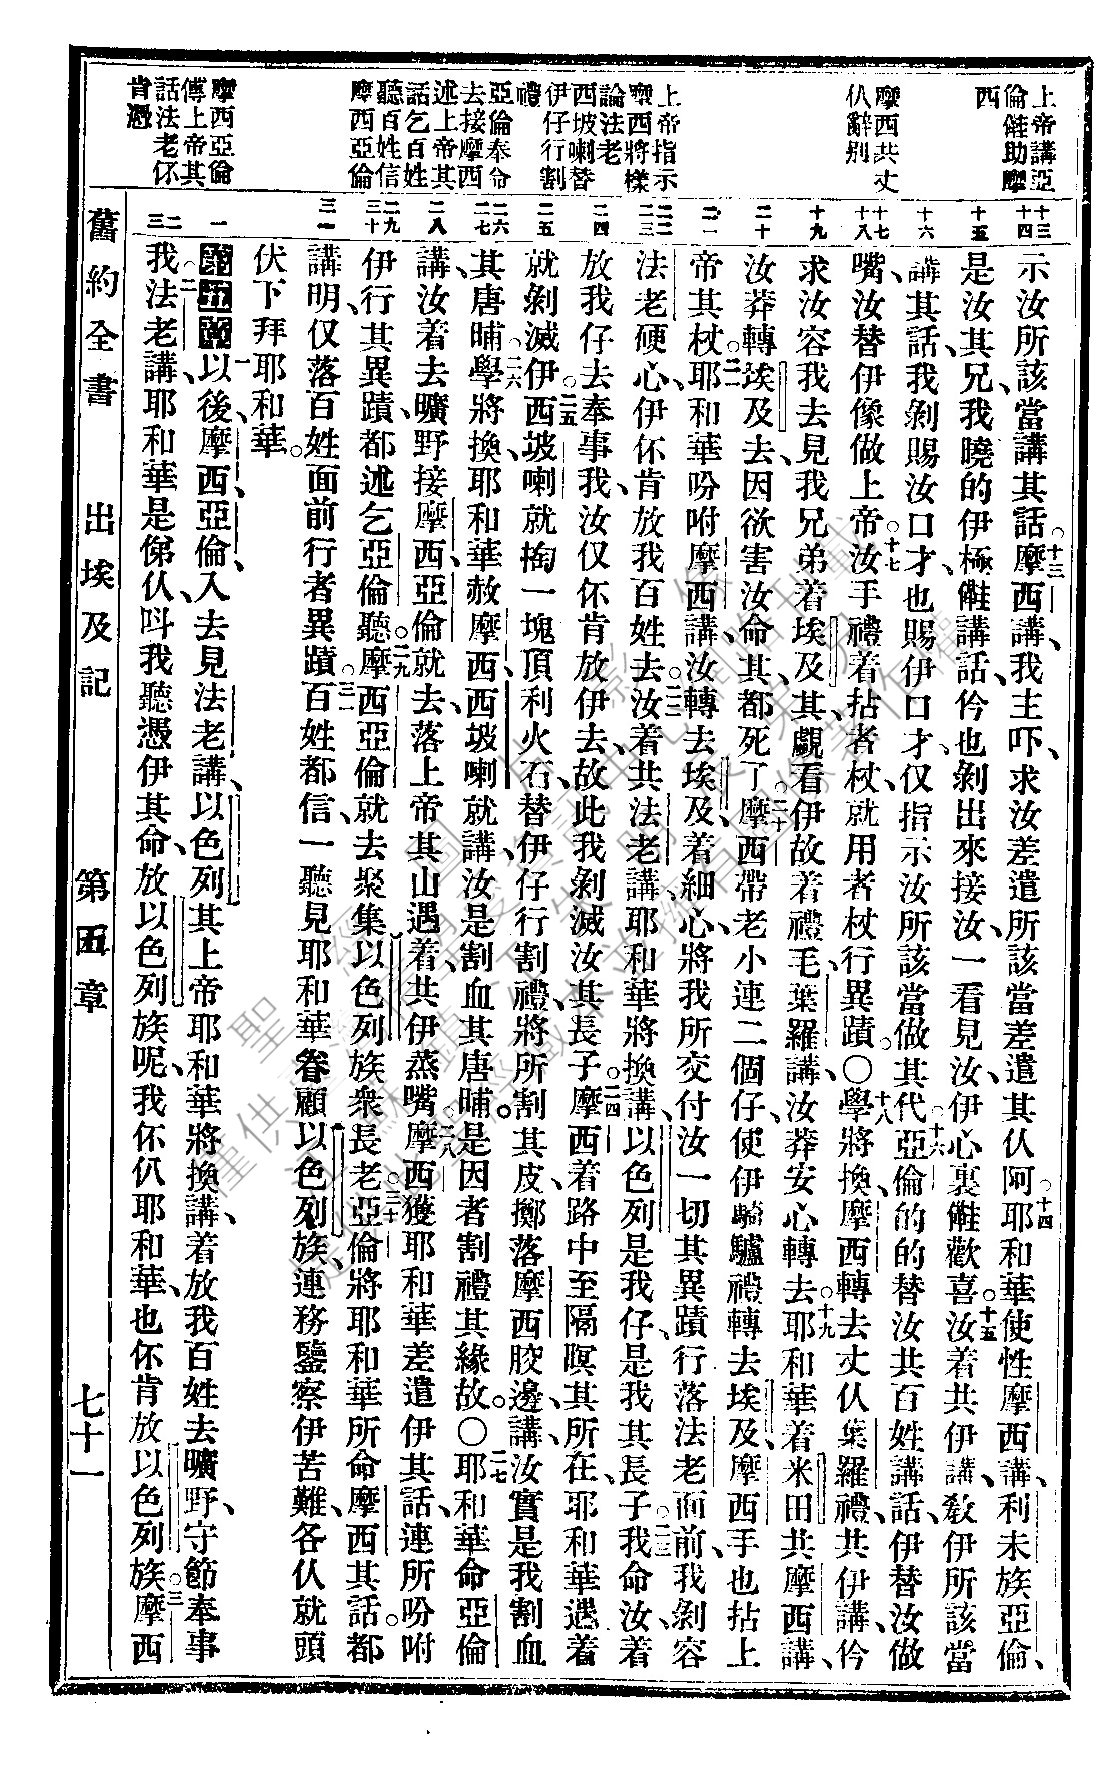 上帝講亞
倫㑃助摩
西
摩西共丈
仈辭別
上帝指示
摩西將樣
論法老
西坡喇替
伊仔行割
禮
亞倫奉令
去接摩西
述上帝其
話乞百姓
聽百姓信
摩西亞倫
摩西亞倫
傳上帝其
話法老伓
肯憑
十三
十四
十五
十六
十七
十八
十九
二十
二一
二二
二三
二四
二五
二六
二七
二八
二九
三十
三一
一
二
三
示汝所該當講其話。十三摩西講、我主吓、求汝差遣所該當差遣其仈阿。十四耶和華使性摩西講、利未族亞倫、
是汝其兄、我曉的伊極㑃講話、伶也剝出來接汝、一看見汝、伊心裏㑃歡喜。十五汝着共伊講、教伊所該當
講其話、我剝賜汝口才、也賜伊口才、仅指示汝所該當做其。十六代亞倫的的替汝共百姓講話、伊替汝做
嘴、汝替伊像做上帝。十七汝手禮着拈者杖、就用者杖行異蹟。〇十八學將換、摩西轉去丈仈葉羅禮、共伊講、伶
求汝容我去見我兄弟着埃及其、覷看伊故着禮毛、葉羅講、汝莽安心轉去。十九耶和華着米田共摩西講、
汝莽轉埃及去、因欲害汝命其、都死了。二十摩西帶老小連二個仔、使伊騎驢禮轉去埃及、摩西手也拈上
帝其杖。二一耶和華吩咐摩西講、汝轉去埃及着細心、將我所交付汝一切其異蹟行落法老面前、我剝容
法老硬心、伊伓肯放我百姓去。二二汝着共法老講、耶和華將換講、以色列是我仔、是我其長子。二三我命汝着
放我仔去奉事我、汝仅伓肯放伊去、故此我剝滅汝其長子。二四摩西着路中至隔暝其所在、耶和華遇着
就剝滅伊。二五西坡喇就掏一塊頂利火石、替伊仔行割禮、將所割其皮擲落摩西骹邊、講、汝實是我割血
其唐晡。二六學將換、耶和華赦摩西、西坡喇就講、汝是割血其唐晡、是因者割禮其緣故。〇二七耶和華命亞倫
講、汝着去曠野接摩西、亞倫就去、落上帝其山遇着、共伊蒸嘴。二八摩西獲耶和華差遣伊其話、連所吩咐
伊行其異蹟、都述乞亞倫聽。二九摩西亞倫就去聚集以色列族衆長老。三十亞倫將耶和華所命摩西其話都
講明、仅落百姓面前行者異蹟。三一百姓都信、一聽見耶和華眷顧以色列族、連務鑒察伊苦難、各仈就頭
伏下拜耶和華。
第五章一以後摩西亞倫入去見法老、講、以色列其上帝耶和華將換講、着放我百姓去曠野、守節奉事
我。二法老講、耶和華是㑚仈、呌我聽憑伊其命、放以色列族呢、我伓仈耶和華、也伓肯放以色列族。三摩西
舊約全書 出埃及記 第五章 七十一